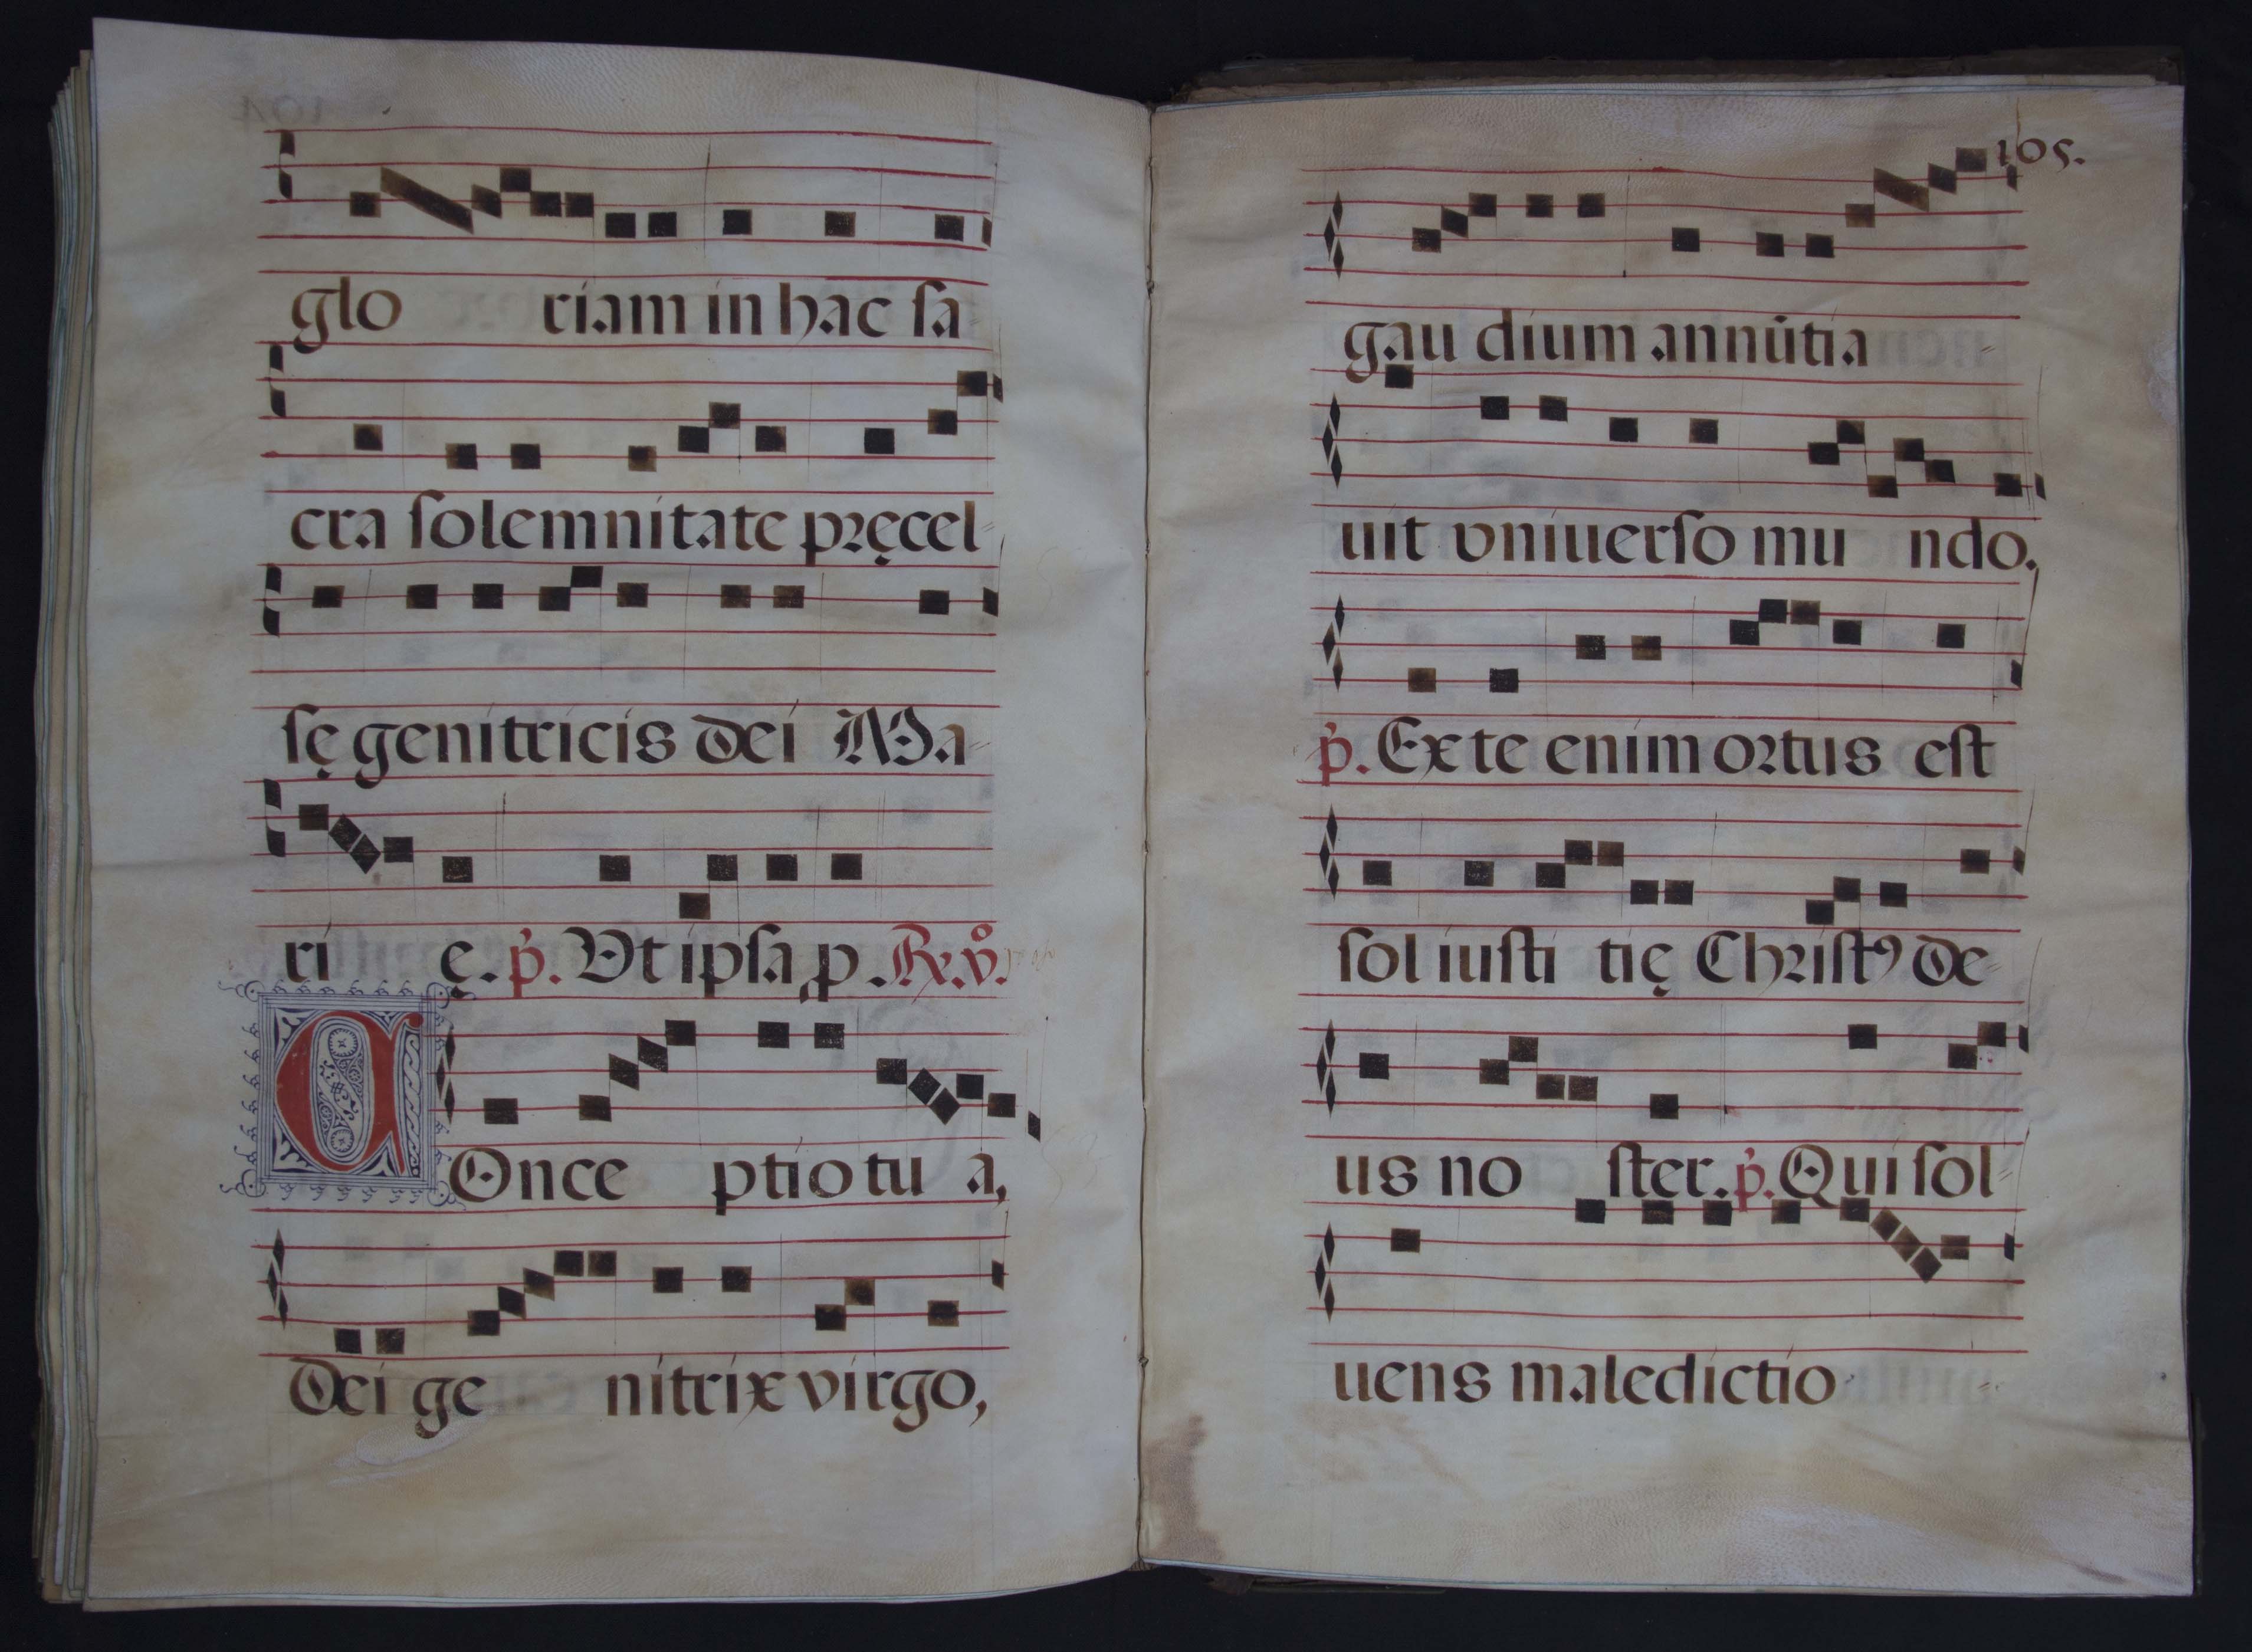 glo riam in hac ſa
cra ſolemnitate pręcel-
ſę genitricis dei Ma-
ri ę. p̃. Vt ipſa p. R. v̊.
COnce ptio tu a,
Dei ge nitrix virgo,
105.
gau dium annũtia =
uit vniuerſo mu ndo.
p̃. Ex te enim ortus eſt
ſol iuſti tię Chriſtꝰ de=
us no ſter. p̃. Qui ſol=
uens maledictio =